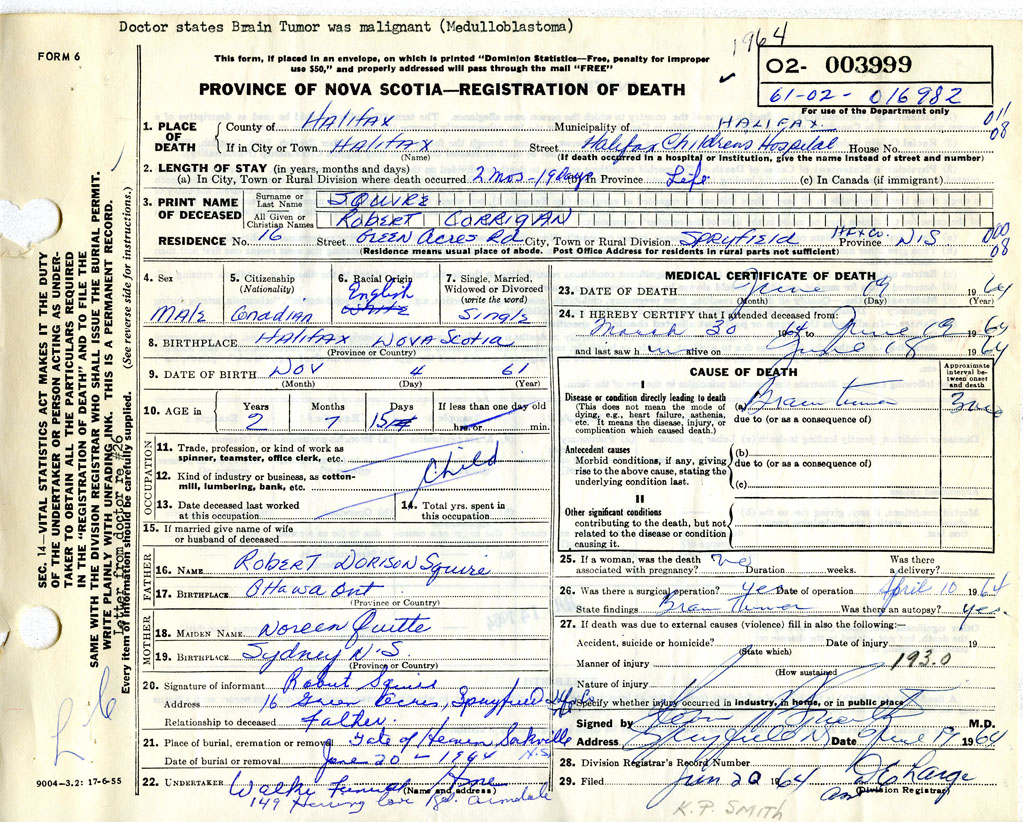 Doctor states Brain Tumor was malignant (Medulloblastoma)
1964
FORM 6
This form, if placed in an envelope, on which is printed "Dominion Statistics—Free, penalty for improper
use $50," and properly addressed will pass through the mail "FREE"
02- 003999
61-02- 016982
For use of the Department only
PROVINCE OF NOVA SCOTIA—REGISTRATION OF DEATH
1. PLACE OF DEATH
County of Halifax Municipality of HALIFAX 011
08
If in City or Town Halifax Street Halifax Childrens Hospital House No.
(Name) (If death occurred in a hospital or institution, give the name instead of street and number)
2. LENGTH OF STAY (in years, months and days)
(a) In City, Town or Rural Division where death occurred 2 Mos - 19 days (b) in Province Life (c) In Canada (if immigrant)
3. PRINT NAME OF DECEASED
Surname or Last Name SQUIRE
All Given or Christian Names ROBERT CORRIGAN
RESIDENCE No. 16 Street GREEN ACRES Rd City, Town or Rural Division SPRYFIELD Hfx Co. Province N.S 000
08
(Residence means usual place of abode. Post Office Address for residents in rural parts not sufficient)
4. Sex
MALE
5. Citizenship
(Nationality)
Canadian
6. Racial Origin
English
White
7. Single, Married, Widowed or Divorced
(write the word)
Single
8. BIRTHPLACE HALIFAX NOVA SCOTIA
(Province or Country)
9. DATE OF BIRTH NOV 4 61
(Month) (Day) (Year)
10. AGE in
Years Months Days If less than one day old
2 7 15 hrs. or min.
OCCUPATION
11. Trade, profession, or kind of work as
spinner, teamster, office clerk, etc.
Child
12. Kind of industry or business, as cotton-
mill, lumbering, bank, etc.
13. Date deceased last worked
at this occupation
14. Total yrs. spent in
this occupation
15. If married give name of wife
or husband of deceased
FATHER
16. NAME ROBERT DORISON Squire
17. BIRTHPLACE Ottawa Ont
(Province or Country)
MOTHER
18. MAIDEN NAME Noreen Quitte
19. BIRTHPLACE Sydney N.S.
(Province or Country)
20. Signature of informant Robert Squire
Address 16 Green Acres, Spryfield
Relationship to deceased Father.
21. Place of burial, cremation or removal Gate of Heaven Sackville
N.S
Date of burial or removal June 20 - 1964
22. UNDERTAKER Walker Funeral Home
(Name and address)
149 Herring Cove Rd. Armdale
9004—3.2: 17-6-55
MEDICAL CERTIFICATE OF DEATH
23. DATE OF DEATH June 19 1964
(Month) (Day) (Year)
24. I HEREBY CERTIFY that I attended deceased from:
March 30 64 to June 19 1964
and last saw him alive on June 18 1964
CAUSE OF DEATH
Approximate interval between onset and death
I
Disease or condition directly leading to death
(This does not mean the mode of dying, e.g., heart failure, asthenia, etc. It means the disease, injury, or complication which caused death.)
(a) Brain tumor
due to (or as a consequence of)
Antecedent causes
Morbid conditions, if any, giving rise to the above cause, stating the underlying condition last.
(b)
due to (or as a consequence of)
(c)
II
Other significant conditions
contributing to the death, but not related to the disease or condition causing it.
25. If a woman, was the death
associated with pregnancy? no Duration weeks. Was there a delivery?
26. Was there a surgical operation? yes Date of operation April 10 1964
State findings Brain Tumor Was there an autopsy? yes.
27. If death was due to external causes (violence) fill in also the following:—
Accident, suicide or homicide? Date of injury 19
(State which)
Manner of injury 193.0
(How sustained)
Nature of injury
Specify whether injury occurred in industry, in home, or in public place
Signed by M.D.
Address Spryfield NS Date June 19 1964
28. Division Registrar's Record Number
29. Filed Jun 20 1964
(Division Registrar)
K.P. SMITH
SEC. 14—VITAL STATISTICS ACT MAKES IT THE DUTY
OF THE UNDERTAKER OR PERSON ACTING AS UNDER-
TAKER TO OBTAIN ALL THE PARTICULARS REQUIRED
IN THE "REGISTRATION OF DEATH" AND TO FILE THE
SAME WITH THE DIVISION REGISTRAR WHO SHALL ISSUE THE BURIAL PERMIT.
WRITE PLAINLY WITH UNFADING INK. THIS IS A PERMANENT RECORD.
Letter from doctor re #26
Every item of information should be carefully supplied. (See reverse side for instructions.)